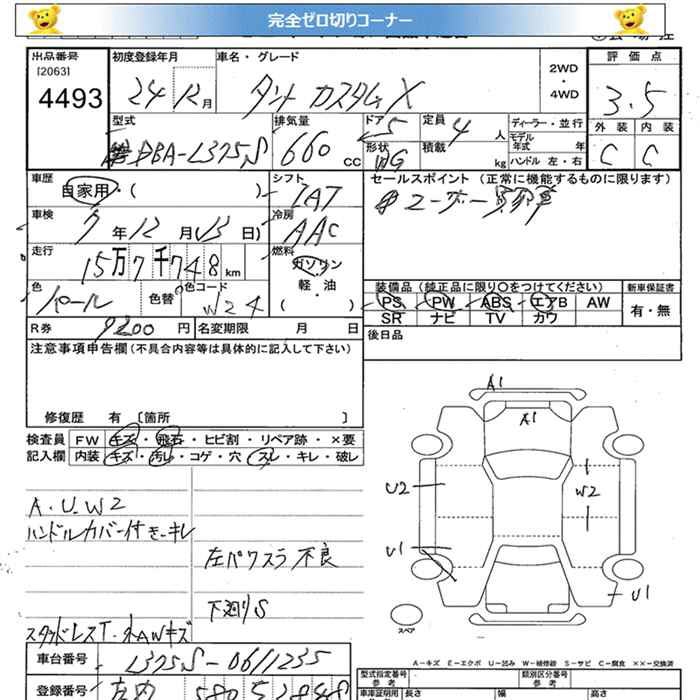 完全ゼロ切りコーナー
出品番号 [2063] 4493
初度登録年月 24 12月
車名・グレード タント カスタムX
2WD・4WD
評価点 3.5
外装 内装
C C
型式 DBA-L375S
排気量 660 cc
ドア 5 形状 WG
定員 4人 積載 kg
ディーラー・並行
モデル年式 年
ハンドル 左・右
車歴 自家用・( )
シフト IAT
セールスポイント (正常に機能するものに限ります)
ユーザー買取車
車検 7年12月(13日)
冷房 AAC
走行 15万7千748km
燃料 ガソリン 軽・油 ( )
色 パール 色替 色コード W24
装備品(純正品に限り○をつけてください)
新車保証書 有・無
PS PW ABS エアB AW
SR ナビ TV カワ
R券 9200円 名変期限 月 日
後日品
注意事項申告欄(不具合内容等は具体的に記入して下さい)
修復歴 有 [箇所 ]
検査員記入欄
FW キズ・飛石・ヒビ割・リペア跡・×要
内装 キズ・汚れ・コゲ・穴・スレ・キレ・破レ
A.U.W2
ハンドルカバー付き-キレ
左パワスラ不良
下廻りS
スタッドレスT.
AWキズ
A1
A1
U2
W2
U1
U1
スペア
A-キズ E-エクボ U-凹み W-補修跡 S-サビ C-腐食 ××-交換済
車台番号 L375S-0611235
型式指定番号 参考
類別区分番号 参考
登録番号 580
車庫証明用参考 長さ 幅 高さ